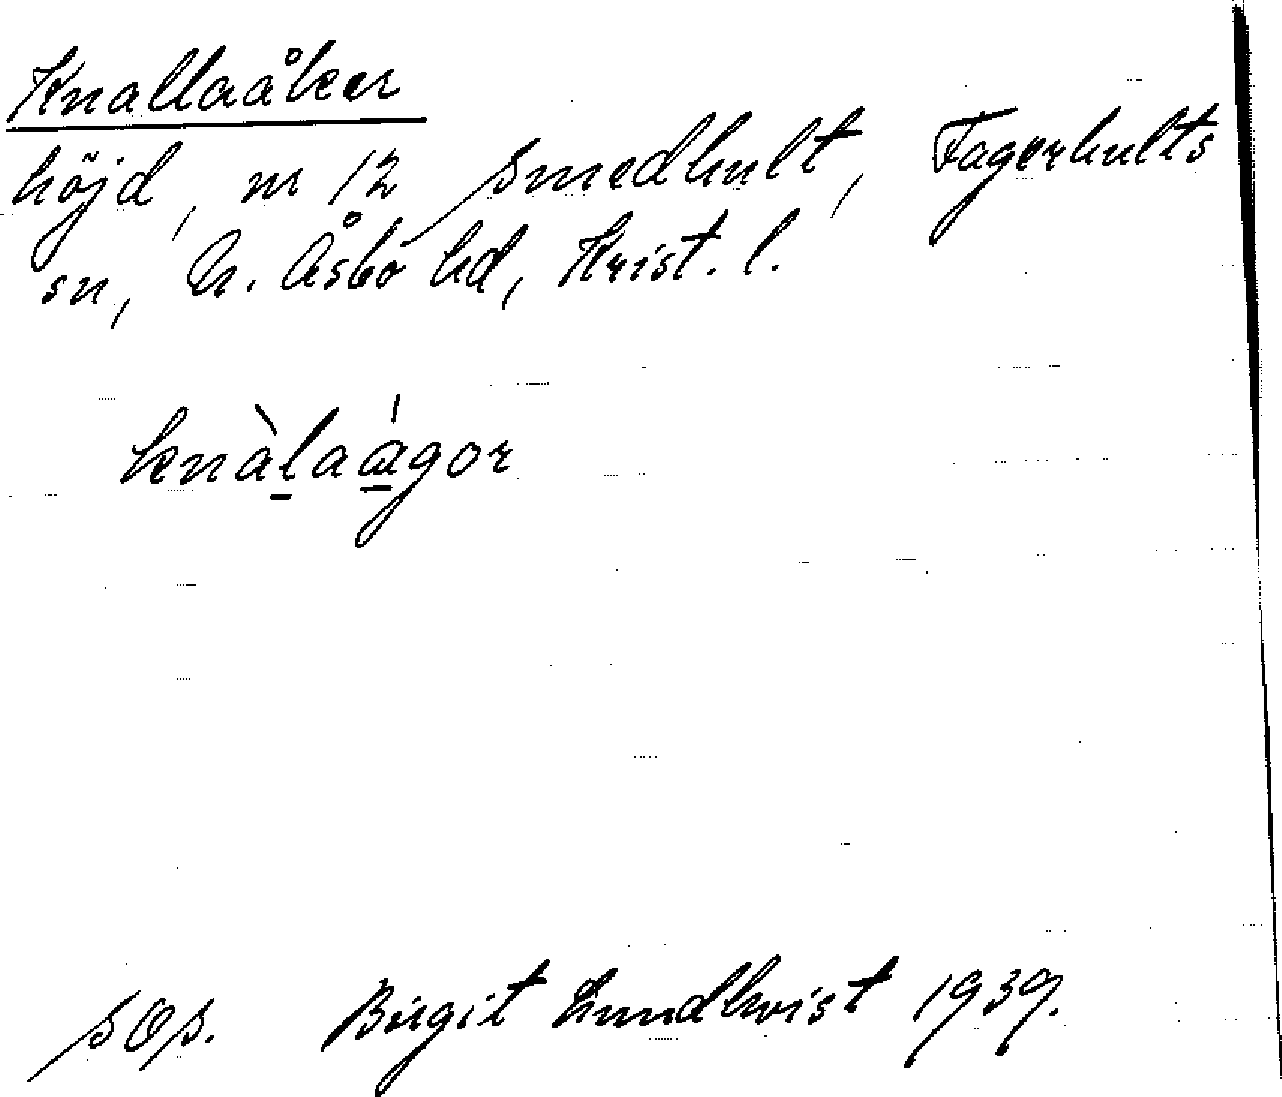 Knallaåker
höjd, nr 12 Smedhult, Fagerhults
sn, N. Åsbo hd, Krist. l.
knàlaágor
SOS. Birgit Lundkvist 1939.